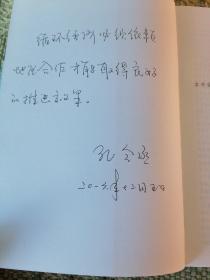 循环经济必须依赖
地区合作才能取得良好
的推进效果。
孔令丞
20一六年十二月五日